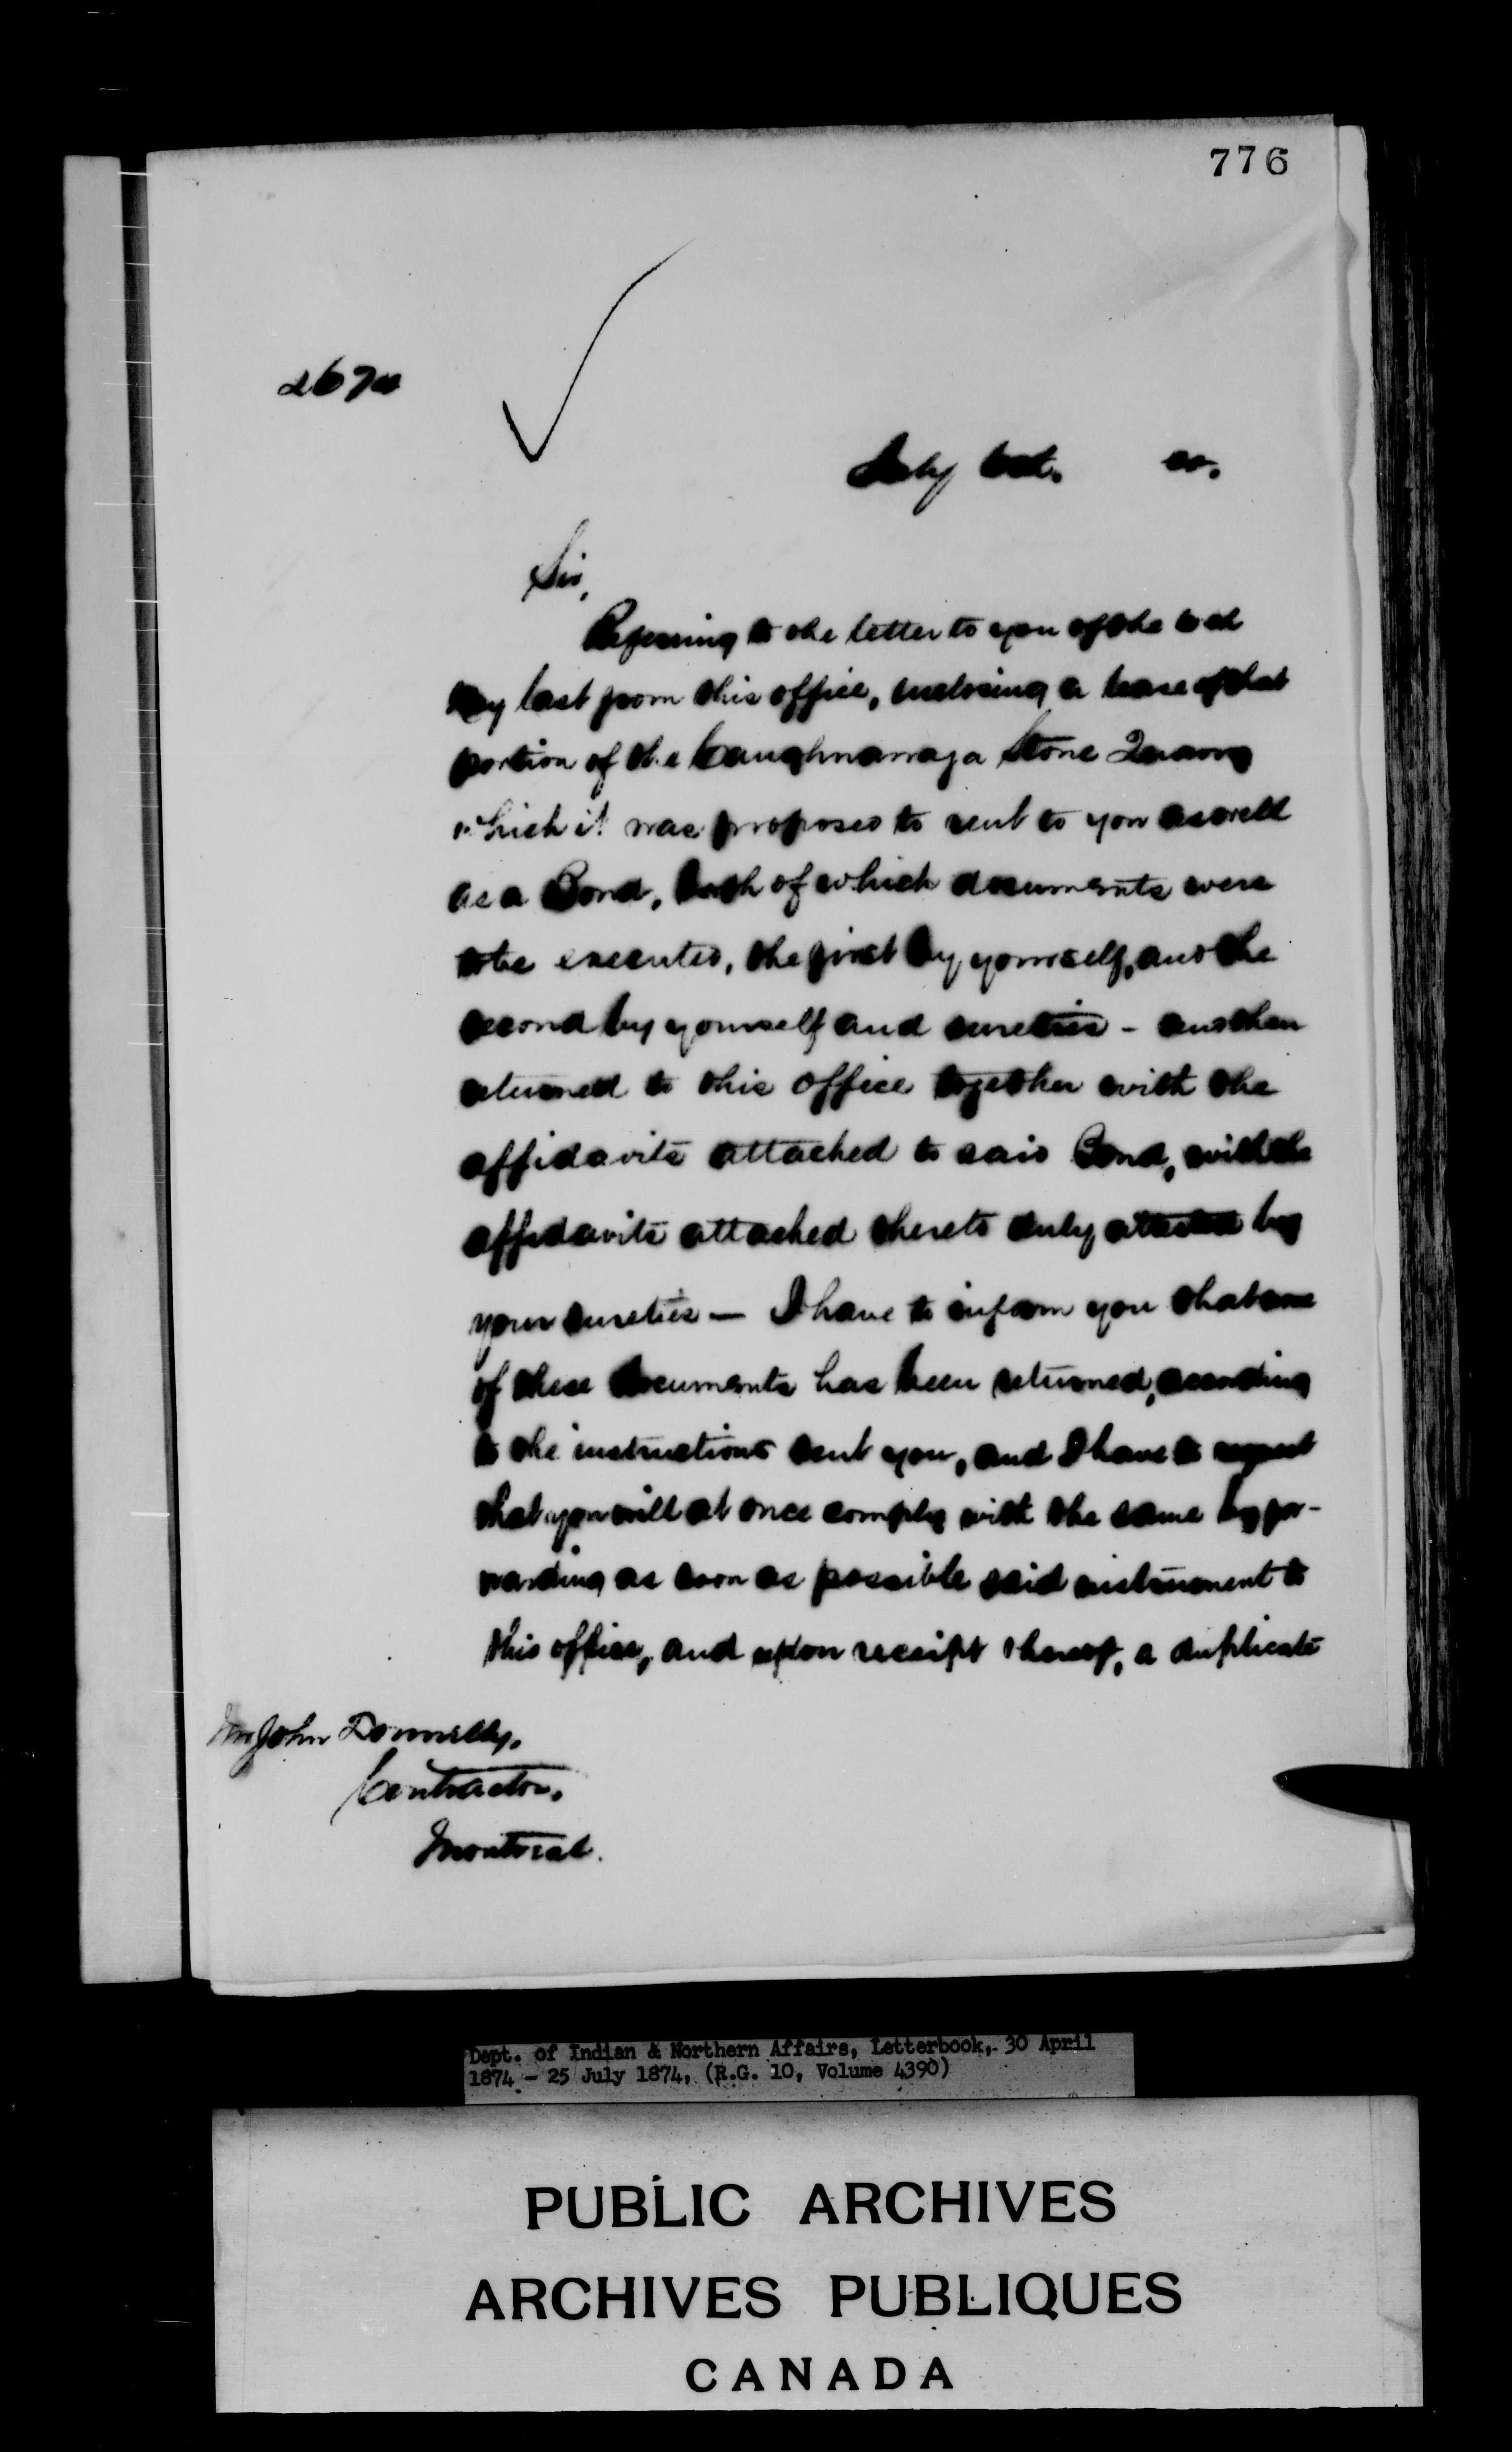 776
July
Sir,
Referring to the letter to you of the
May last from this office, inclosing a lease of that
portion of the Caughnawaga Stone Quarry
which it was proposed to rent to you as well
as a Bond, both of which documents were
to be executed, the first by yourself, and the
second by yourself and sureties - and then
returned to this office together with the
affidavits attached to said Bond, with the
affidavits attached thereto duly attested by
your sureties — I have to inform you that
of these documents has been returned, according
to the instructions sent you, and I have to request
that you will at once comply with the same by for-
warding as soon as possible said instrument to
this office, and upon receipt thereof, a duplicate
Mr John Donnelly.
Contractor.
Montreal.
Dept. of Indian & Northern Affairs, Letterbook, 30 April
1874 - 25 July 1874, (R.G. 10, Volume 4390)
PUBLIC ARCHIVES
ARCHIVES PUBLIQUES
CANADA